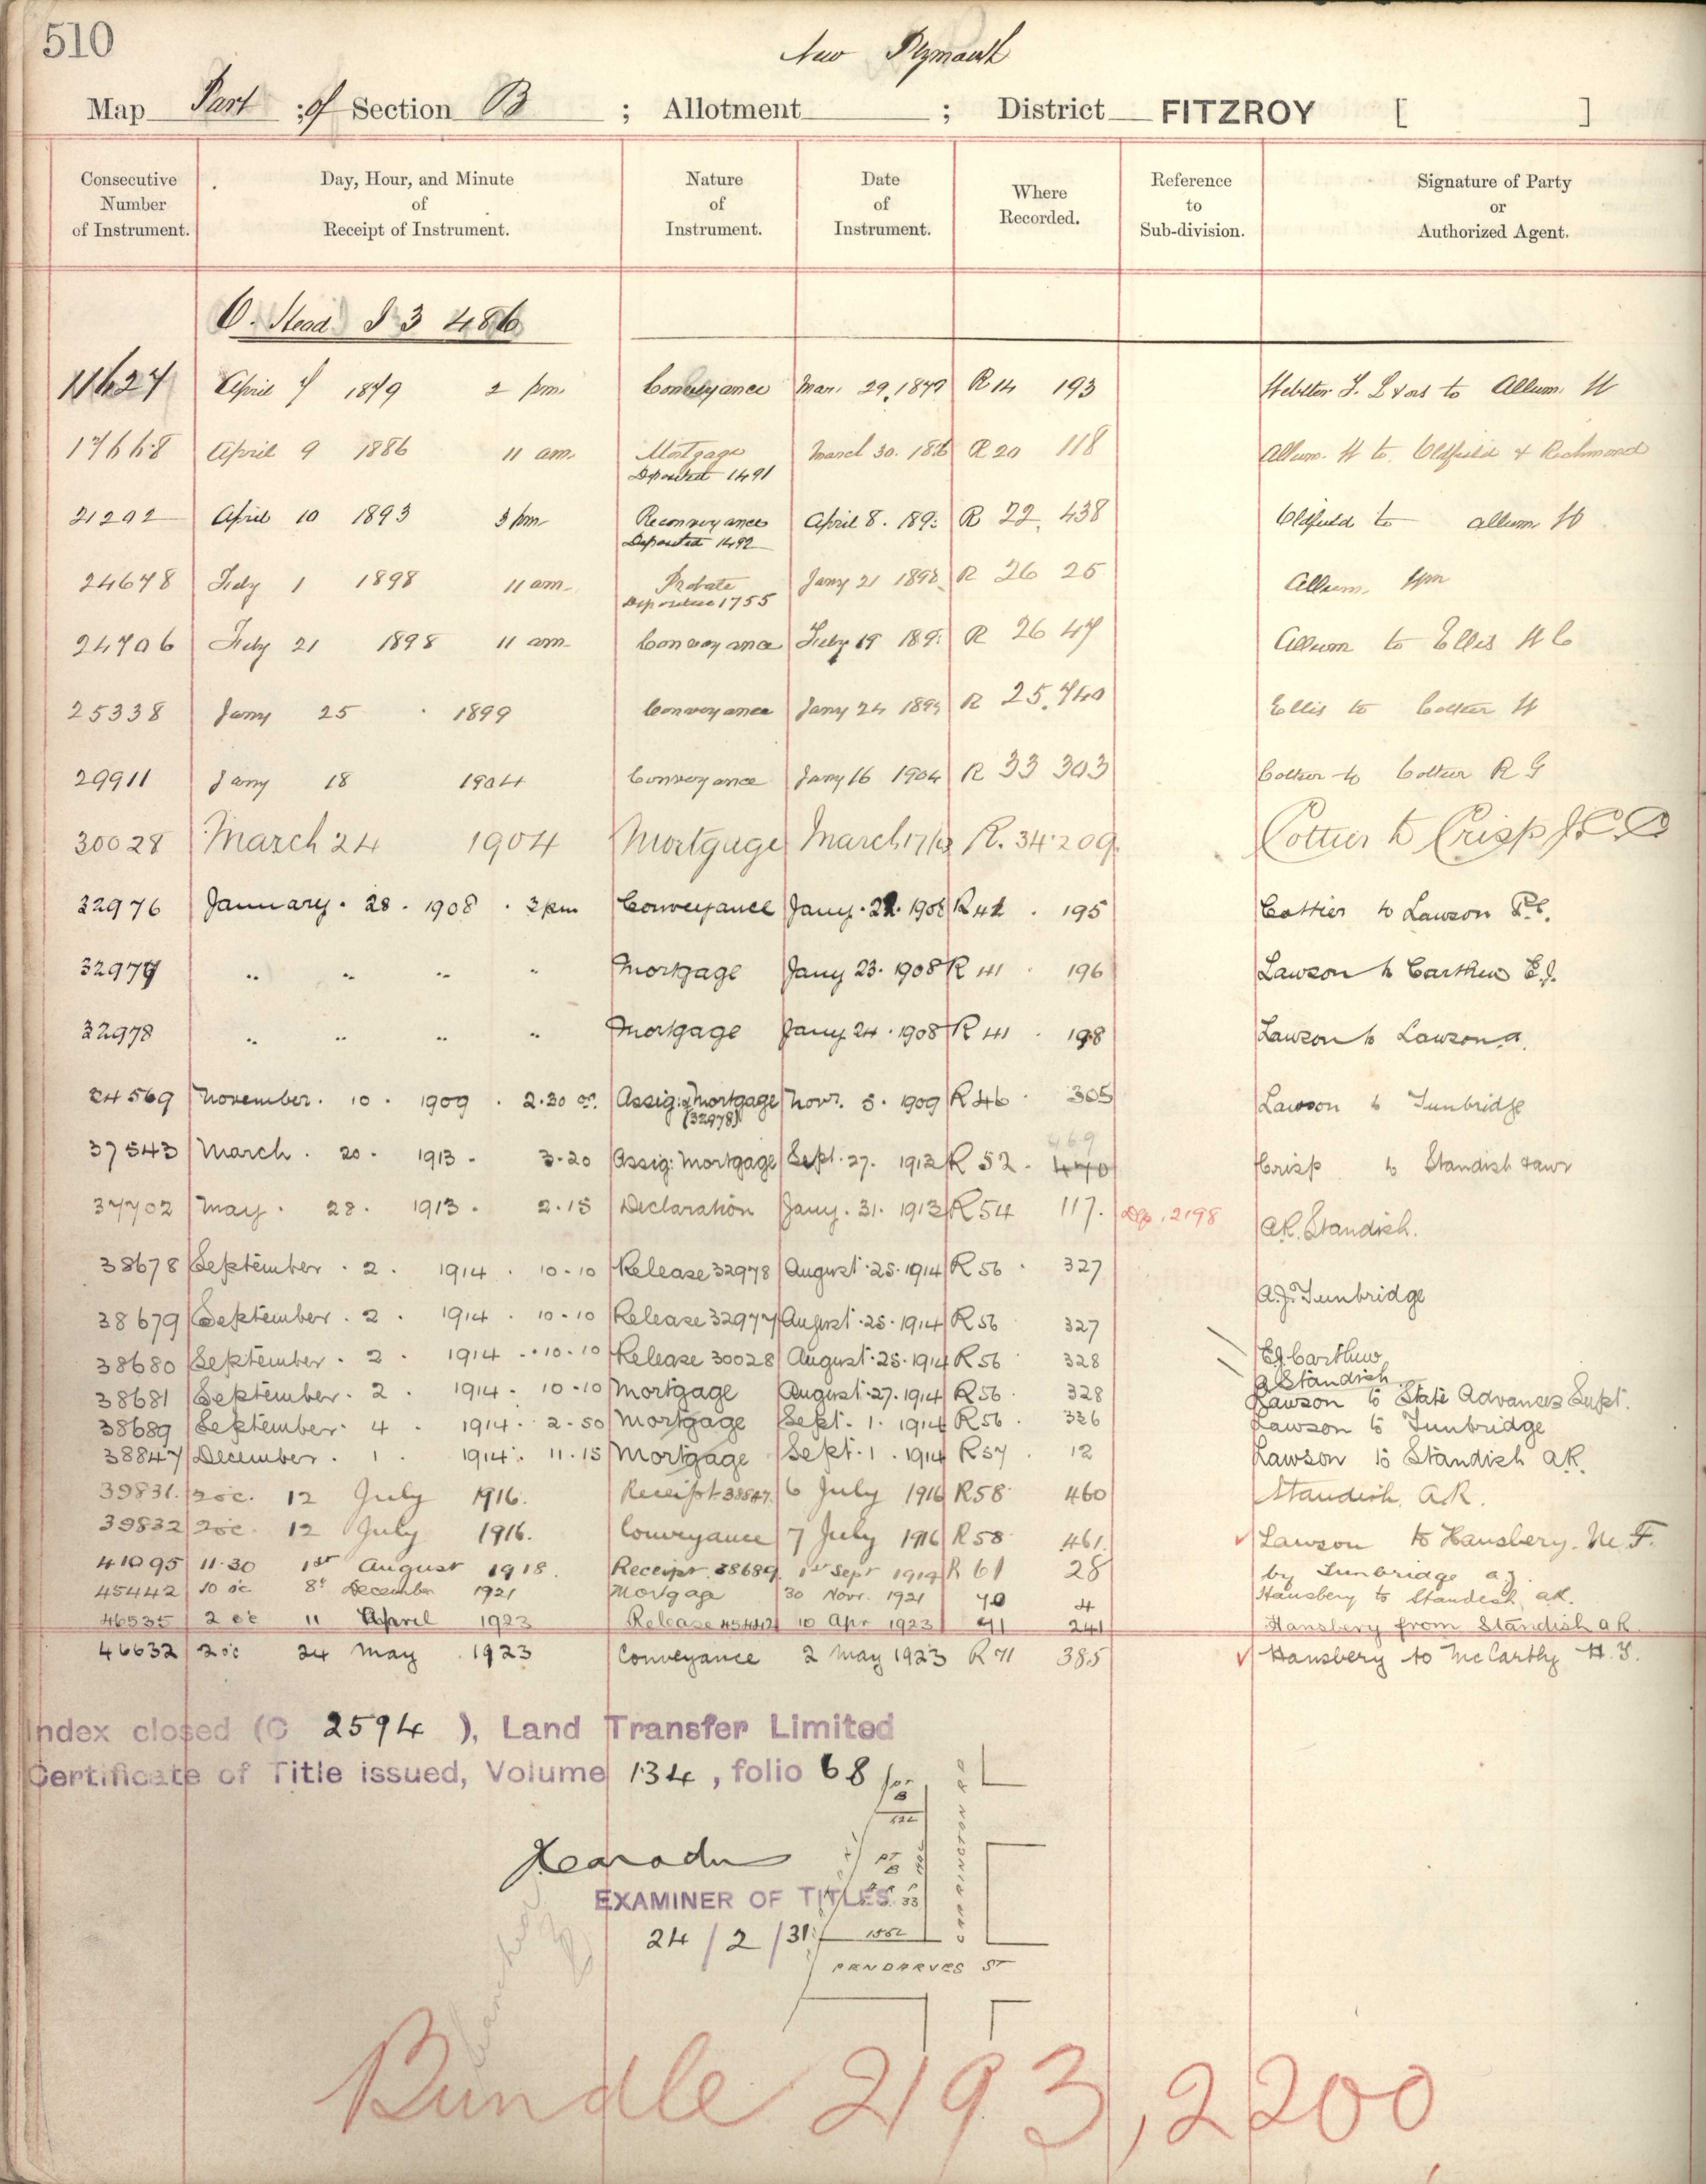 510
New Plymouth
Map Part ; of Section B ; Allotment ; District FITZROY [ ]
Consecutive Number of Instrument. Day, Hour, and Minute of Receipt of Instrument. Nature of Instrument. Date of Instrument. Where Recorded. Reference to Sub-division. Signature of Party or Authorized Agent.
486
11627 April 7 1879 2 pm. Conveyance Mar. 29, 1879 R 14 193 to Allum. H
17668 April 9 1886 11 am. Mortgage March 30. 1886 R 20 118 Allum. H to Oldfield & Richmond
Deposited 1491
21292 April 10 1893 3 pm Reconveyance April 8. 189 R 22. 438 Oldfield to Allum H
Deposited 1492
24678 July 1 1898 11 am. Probate Jany 21 1898 R 26 25 Allum.
Deposited 1755
24706 July 21 1898 11 am. Conveyance July 19 189 R 26 47 Allum to Ellis H C
25338 Jany 25 1899 Conveyance Jany 24 1899 R 25. 740 Ellis to Cottier H
29911 Jany 18 1904 Conveyance Jany 16 1904 R 33 303 Cottier to Cottier R G
30028 March 24 1904 Mortgage March 17 R. 34 209 Cottier to Crisp
32976 January. 28. 1908. 3 pm Conveyance Jany. 22. 1908 R 41. 195 Cottier to Lawson P.C.
32977 .. .. .. .. Mortgage Jany 23. 1908 R 41. 196 Lawson to Carthew E.J.
32978 .. .. .. .. Mortgage Jany 24. 1908 R 41. 198 Lawson to Lawson. A.
34569 November. 10. 1909. 2.30 Assig: of Mortgage Novr. 5. 1909 R 46. 305 Lawson to Tunbridge
(32978)
469
37543 March. 20. 1913. 3.20 Assig: Mortgage Sept. 27. 1912 R 52. 470 Crisp to Standish & anr
37702 May. 28. 1913. 2.15 Declaration Jany. 31. 1913 R 54 117. Dep. 2198 A.R. Standish.
38678 September. 2. 1914. 10.10 Release 32978 August. 25. 1914 R 56. 327 A.J. Tunbridge
38679 September. 2. 1914. 10.10 Release 32977 August. 25. 1914 R 56 327 E.J. Carthew
38680 September. 2. 1914. 10.10 Release 30028 August. 25. 1914 R 56 328 A Standish
38681 September. 2. 1914. 10.10 Mortgage August. 27. 1914 R 56. 328 Lawson to State Advances Supt.
38689 September. 4. 1914. 2.50 Mortgage Sept. 1. 1914 R 56. 336 Lawson to Tunbridge
38847 December. 1. 1914. 11.15 Mortgage Sept. 1. 1914 R 57. 12 Lawson to Standish A.R.
39831. 2 oc. 12 July 1916. Receipt 38847. 6 July 1916 R 58. 460 Standish. A.R.
39832 2 oc. 12 July 1916. Conveyance 7 July 1916 R 58. 461. Lawson to Hansbery. M. F.
41095 11.30 1st August 1918. Receipt. 38689. 1st Sept R 61 28 by Tunbridge A J.
45442 10 oc 8th December 1921 Mortgage 30 Novr. 1921 70 4 Hansbery to Standish A.R.
46535 2 oc 11 April 1923 Release 45442 10 Apr 1923 71 241 Hansbery from Standish A R
46632 2 oc 24 May 1923 Conveyance 2 May 1923 R 71 385 Hansbery to McCarthy
Index closed (C 2594 ), Land Transfer Limited
Certificate of Title issued, Volume 134, folio 68
EXAMINER OF TITLES.
24/2/31
CARRINGTON RD
PENDARVES ST
Bundle 2193, 2200